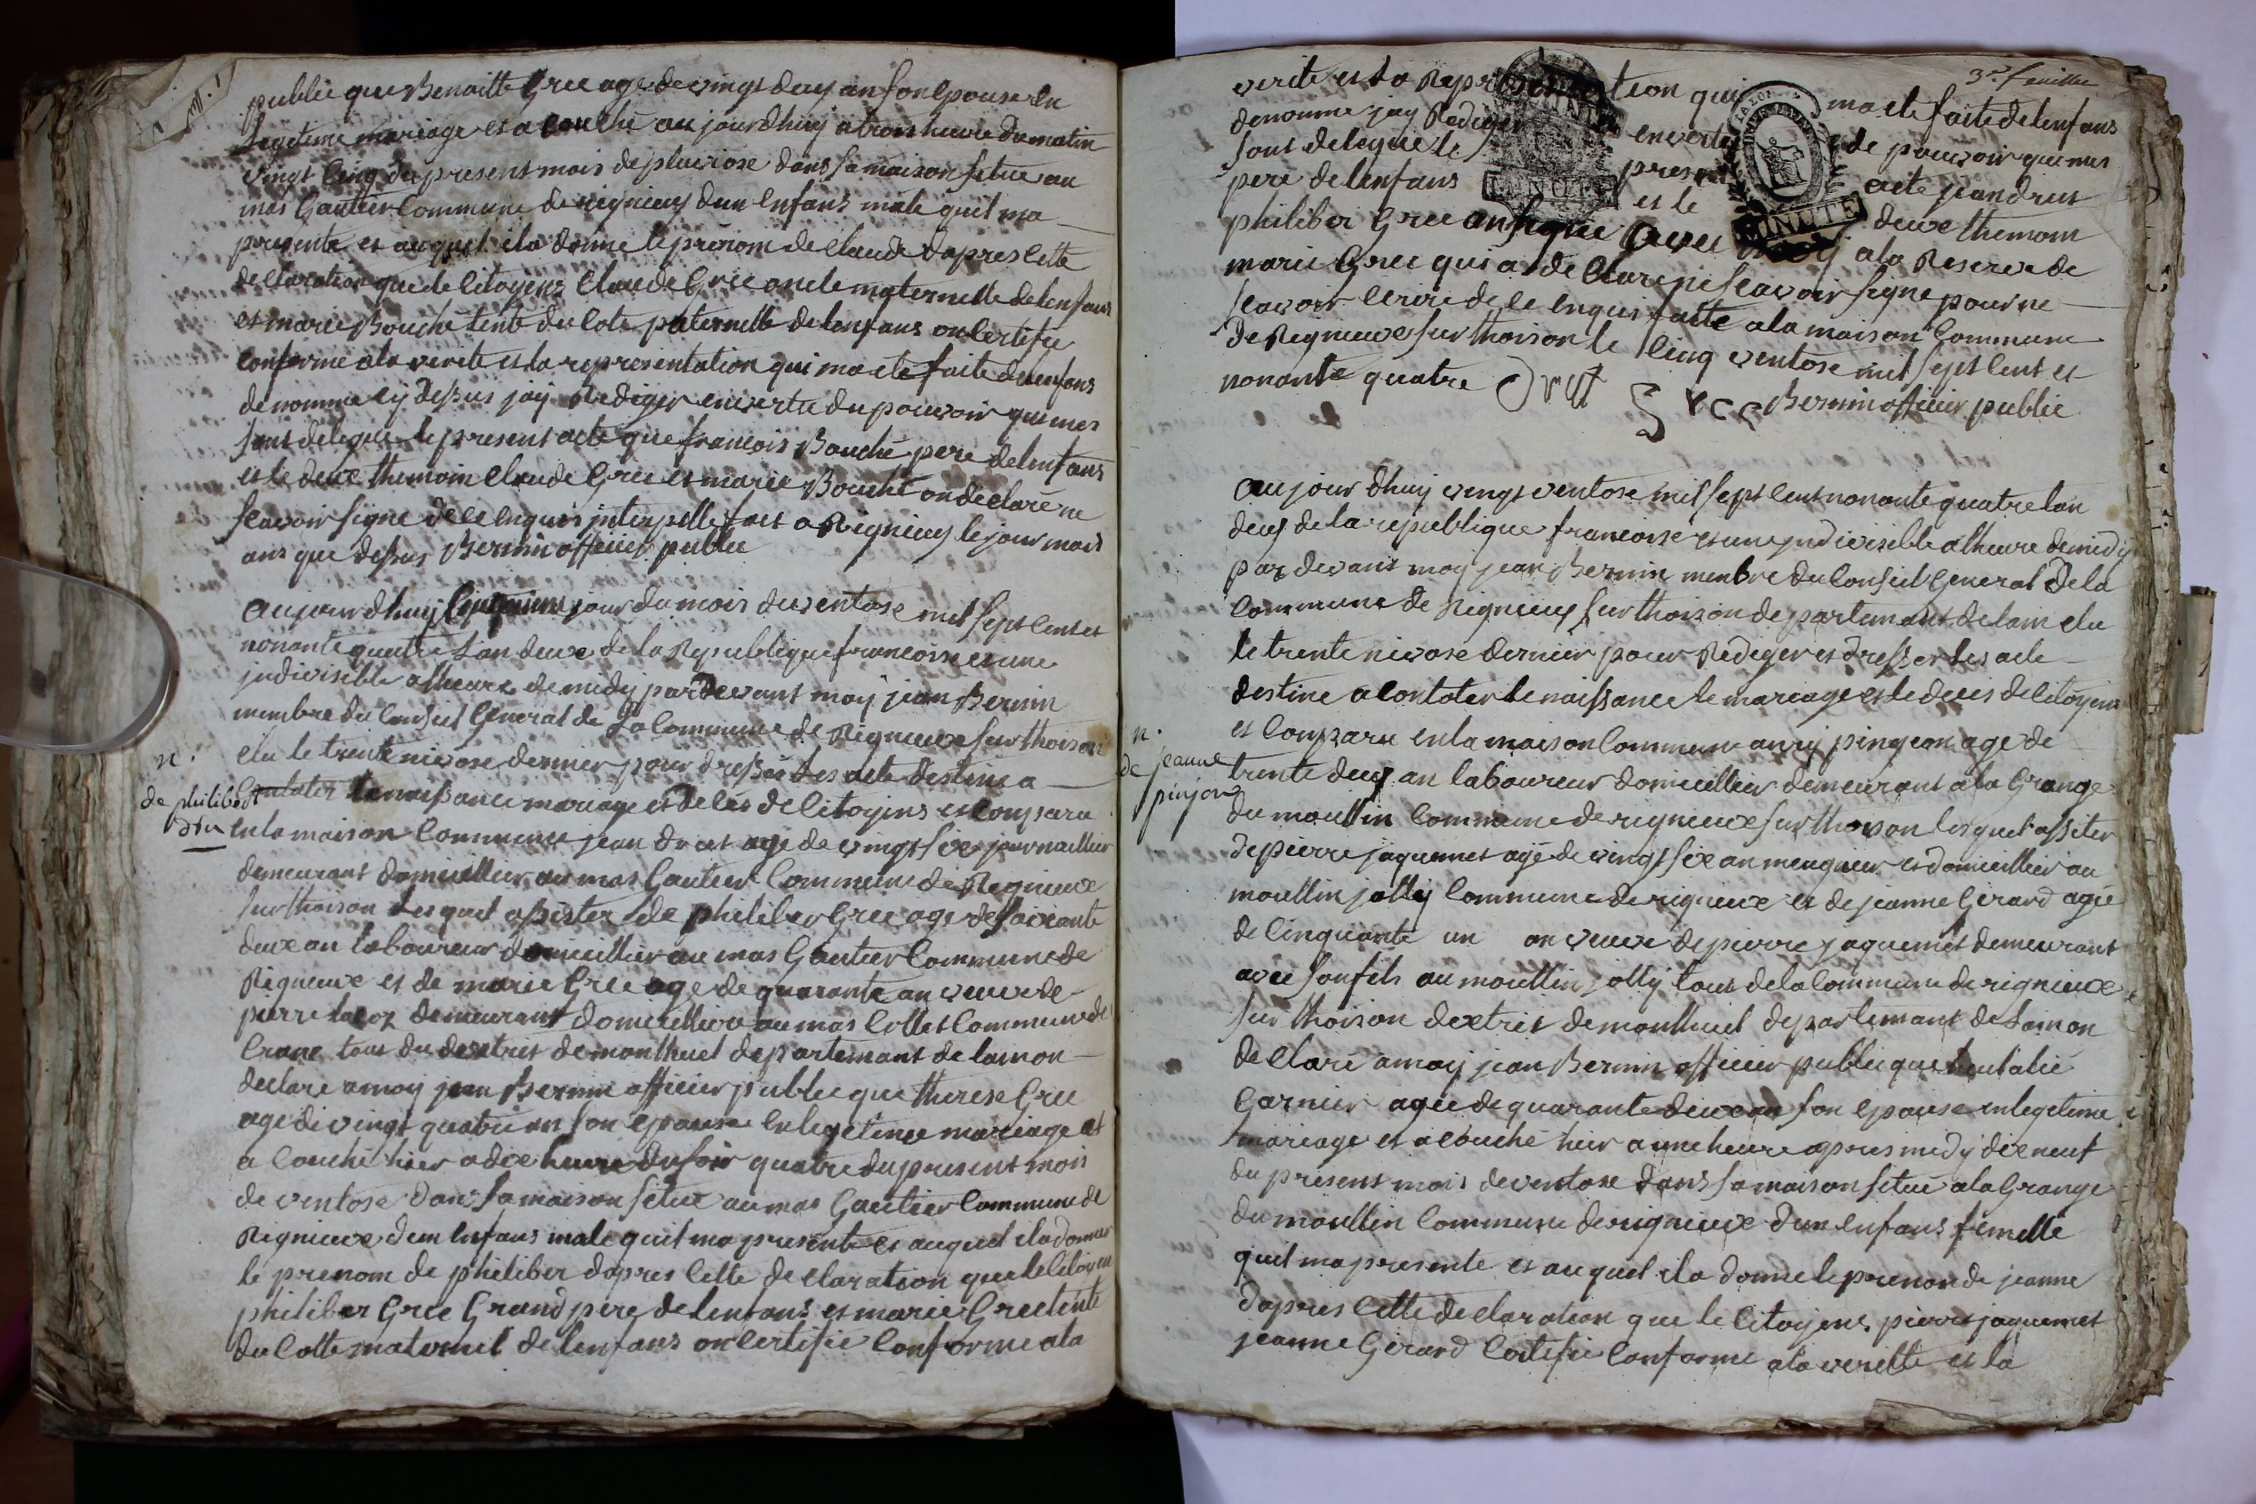 publie que Benoitte Gree age de vingt deux an son epouse en
legetime mariage et a couche au jourdhuy a trois heure du matin
vingt cinq du present mois de pluviose dans sa maison situe au
mas Gautier commune de rignieux dun enfans male quil ma
presente et auquel il a donne le prenom de claude dapres cette
declaration que le citoyens claude Gree oncle maternelle de lenfans
et marie Bouche tente du cote paternelle de lenfans on certifie
conforme a la verite et la representation qui ma ete faite de lenfans
denomme cy dessus jay Rediger en vertu du pouvoir qui mes
sont delegue le present acte que francois Bouche pere de lenfans
et le deux themoin claude Gree et marie Bouche on declare ne
scavoir signe de ce enquis interpelle fait a Rignieux le jour mois
ans que dessus Bernin officier public
aujourdhuy cinquieme jour du mois de ventose mil sept cent et
nonante quatre lan deuxe de la Republique francoise et une
jndivisible a lheure de midy par devant moy jean Bernin
membre du conseil General de la commune de Rignieuxe sur thoison
elu le trente nivose dernier pour dresser les acte destine a
n.
de philibert
dru
constater la naissance mariage et deces de citoyens et compara
en la maison commune jean drut age de vingt sixe journaillier
demeurant domicillier au mas Gautier commune de Regnieuxe
sur thoison lesquel assister de philiber Gree age de soixante
deuxe an laboureur domicillier au mas Gautier commune de
Rigneuxe et de marie Gree age de quarante an veuve de
pierre demeurant domicilliere au mas Collet commune de
Crane tous du dextrict de montluel departemant de lain on
declare a moy jean Bernin officier public que therese Gree
age de vingt quatre an son epouse en legetime mariage et
a couche hier a dixe heure du soir quatre du present mois
de ventose dans sa maison situe au mas Gautier commune de
Rignieuxe dun enfans male quil ma presente et auquel il a donner
le prenom de philiber dapres cette declaration que le citoyen
philiber Gree Grand pere de lenfans et marie Gree tente
du cotte maternel de lenfans on certifie conforme a la
3e feuillee
verite et la Representation qui ma ete faite de lenfans
denomme jay Rediger en vertu de pouvoir qui mes
sont delegue le present acte jean drut
pere de lenfans et le deuxe themoin
philiber Gree an signe avec moy a la Reserve de
marie Gree qui a declare ne scavoir signe pour ne
scavoir ecrire de ce enquis faite a la maison commune
de Regnieuxe sur thoison le cinq ventose mil sept cent et
nonante quatre Drut Bernin officier public
MINUTE
MINUTE
aujourdhuy vingt ventose mil sept cent nonante quatre lan
deux de la republique francoise et une jndivisible a lheure de midy
par devant moy jean Bernin menbre du conseil General de la
commune de Rignieux sur thoison departemant de lain elu
le trente nivose dernier pour Rediger et dresser les acte
destine a contater le naissance le mariage et le deces de citoyens
n.
de jeanne
pinjon
et compara en la maison commune anry pingeon age de
trente deux an laboureur domicillier demeurant a la Grange
du moullin commune de rigneuxe sur thoison lesquel assiter
de pierre jaquemet age de vingt six an meugnier et domicillier au
moullin jolly commune de rigneuxe et de jeanne Gerard agee
de cinquante un an veuve de pierre jaquemet demeurant
avec son fils au moullin jolly tous de la commune de rignieuxe
sur thoison dextrict de montluel departemant de lain on
declare a moy jean Bernin officier public que
Garnier agee de quarante deuxe an son epouse en legetime
mariage et a couche hier a une heure apres midy dixe neuf
du present mois de ventose dans sa maison situe a la Grange
du moullin commune de rignieuxe dun enfans femelle
quil ma presente et auquel il a donne le prenon de jeanne
dapres cette declaration que le citoyens pierre jaquemet
jeanne Gerard certifie conforme a la verette et la